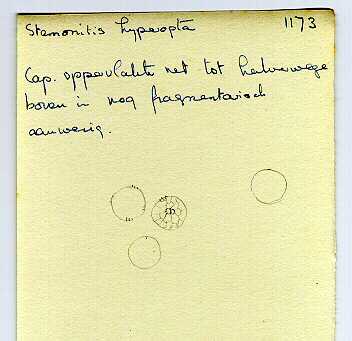 Stemonitis hyperopta 1173
Cap. oppervlakte net tot halverwege
boven in nog fragmentarisch
aanwezig.